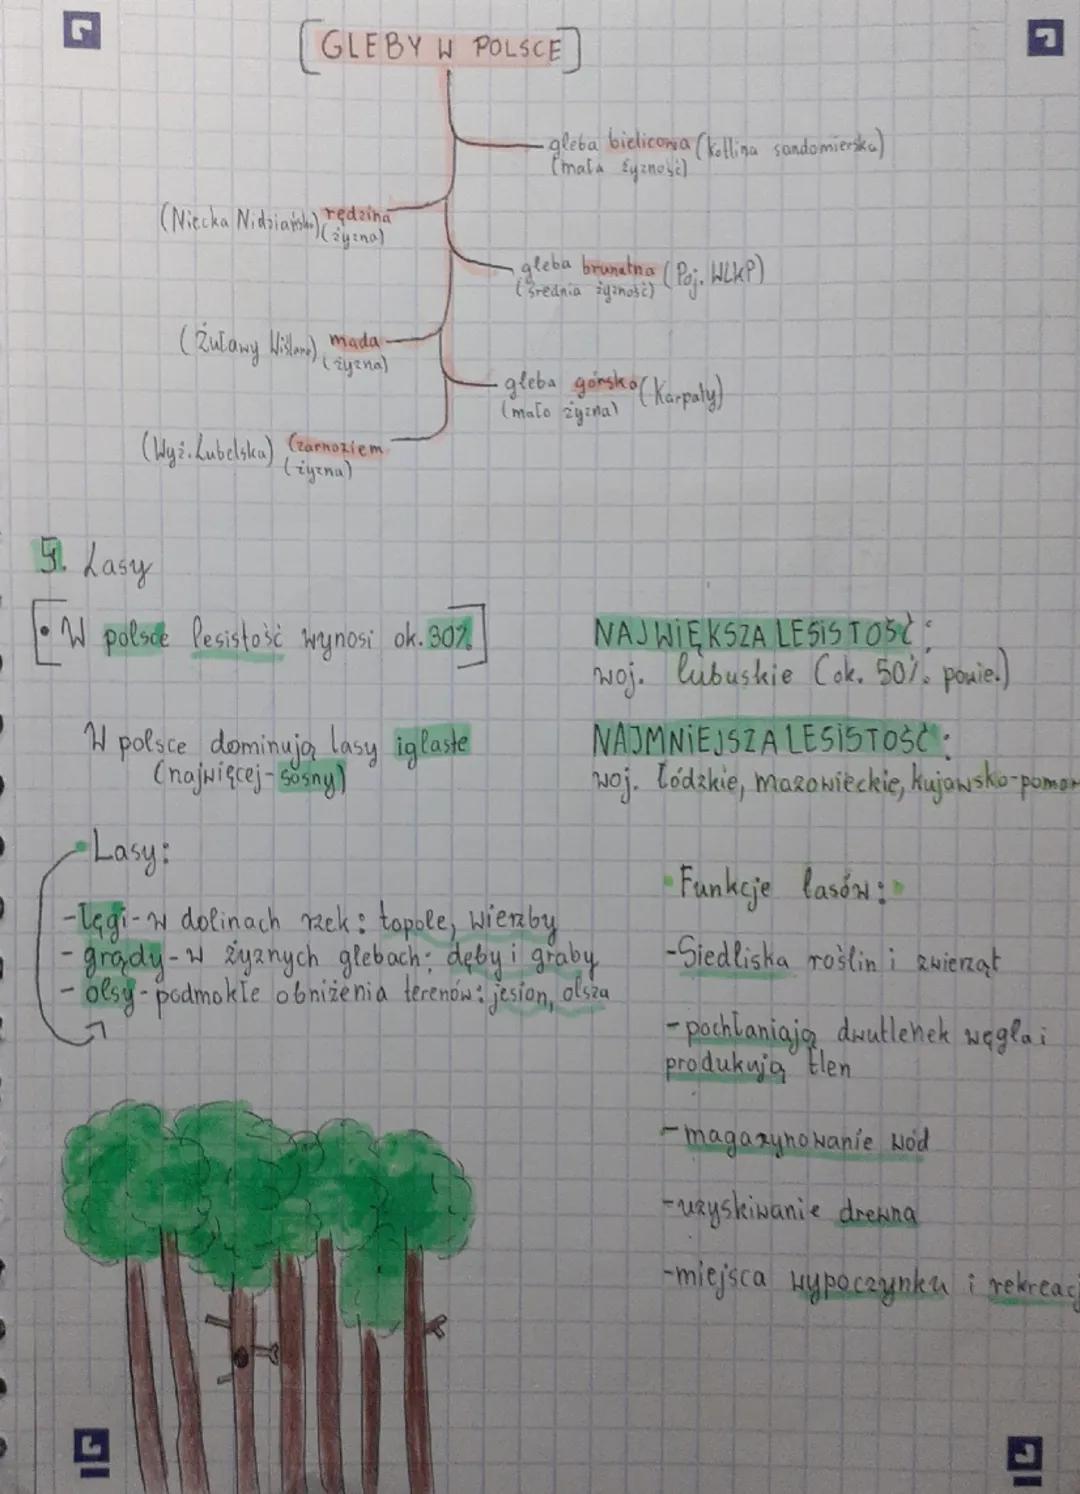 [GLEBY W POLSCE]
gleba bielicowa (kotlina sandomierska)
(mała żyzność)
(Niecka Nidziańska) rędzina
(żyzna)
gleba brunatna (Poj. WLKP)
(średnia żyzność)
(Żuławy Wiślane) mada
(żyzna)
gleba górska (Karpaty)
(mało żyzna)
(Wyż. Lubelska) Czarnoziem
(żyzna)
5. Lasy
• W polsce lesistość wynosi ok. 30%
NAJWIĘKSZA LESISTOŚĆ:
woj. lubuskie (ok. 50% powie.)
W polsce dominują lasy iglaste
(najwięcej - sosny)
NAJMNIEJSZA LESISTOŚĆ:
woj. łódzkie, mazowieckie, kujawsko-pomor
• Lasy:
- łęgi - w dolinach rzek: topole, wierzby
- grądy - w żyznych glebach: dęby i graby
- olsy - podmokłe obniżenia terenów: jesion, olsza
• Funkcje lasów:
- Siedliska roślin i zwierząt
- pochłaniają dwutlenek węgla i
produkują tlen
- magazynowanie wód
- uzyskiwanie drewna
- miejsca wypoczynku i rekreacj